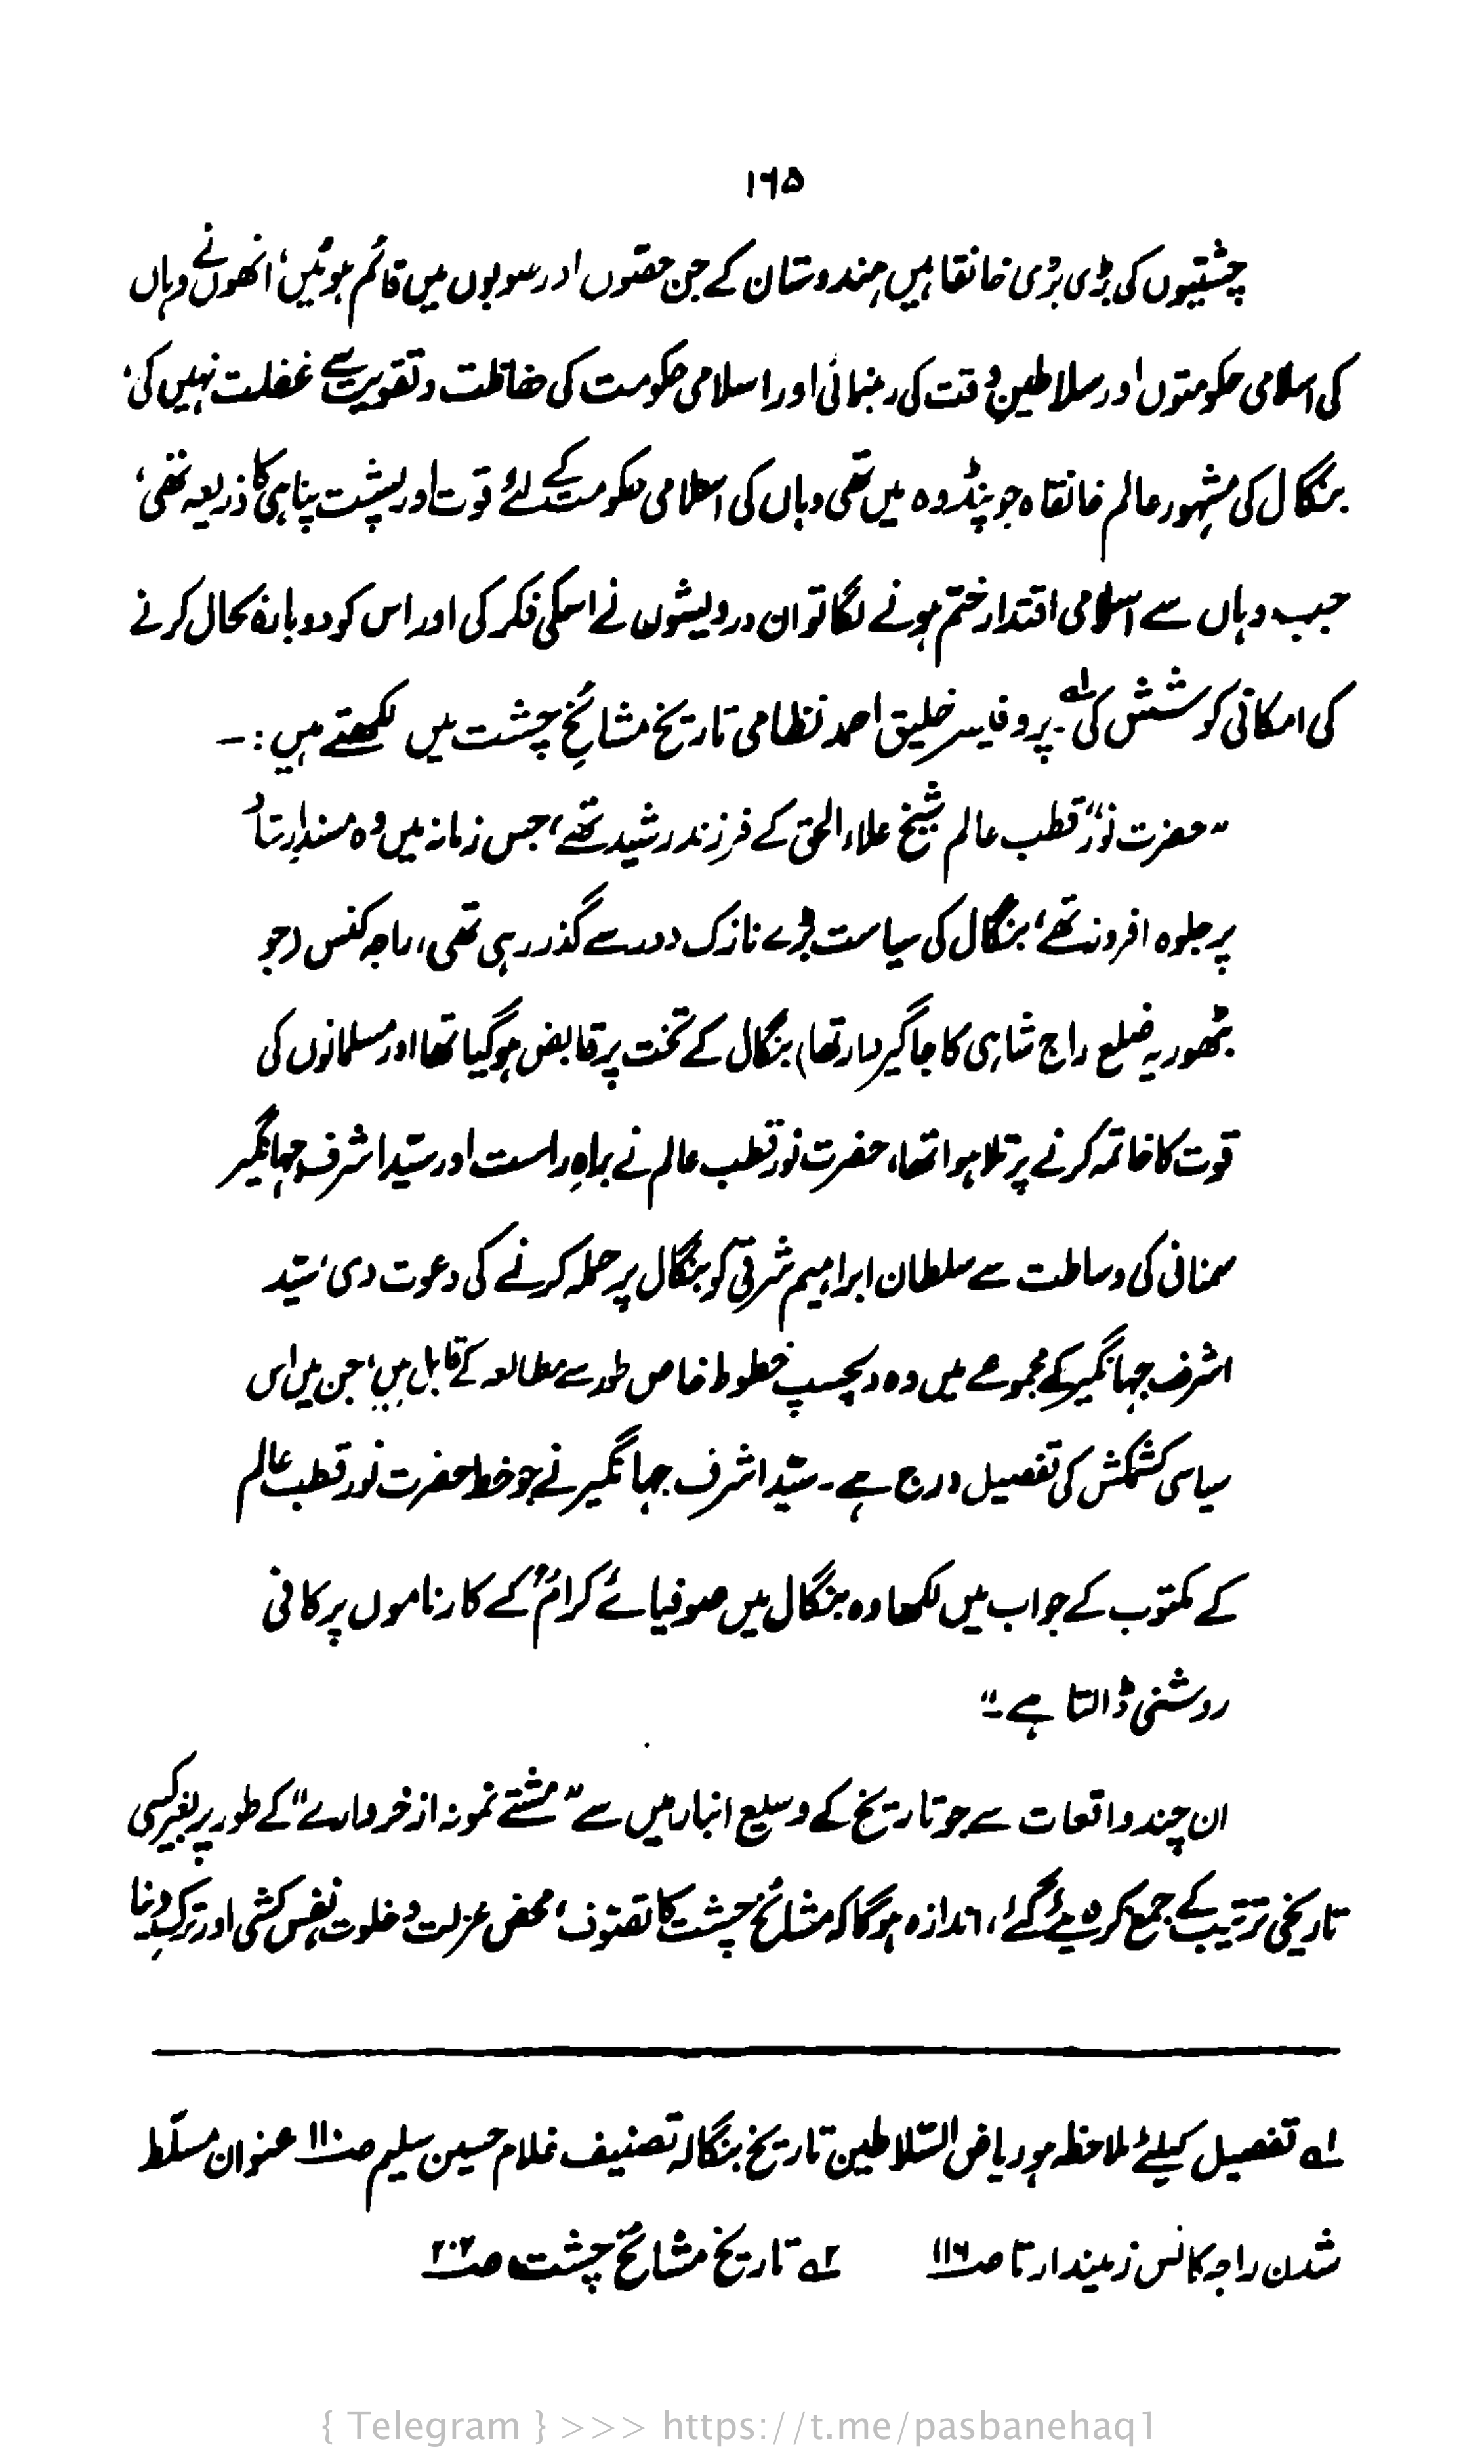 ۱۶۵
چشتیوں کی بڑی بڑی خانقاہیں ہندوستان کے جن حصّوں اور صوبوں میں قائم ہوئیں، انھوں نے وہاں
کی اسلامی حکومتوں اور سلاطینِ وقت کی رہنمائی اور اسلامی حکومت کی حفاظت و تقویت سے غفلت نہیں کی،
بنگال کی مشہور عالم خانقاہ جو پنڈوہ میں تھی وہاں کی اسلامی حکومت کے لئے قوت اور پشت پناہی کا ذریعہ تھی،
جب وہاں سے اسلامی اقتدار ختم ہونے لگا تو ان درویشوں نے اسکی فکر کی اور اس کو دوبارہ بحال کرنے
کی امکانی کوشش کی۔ ؎۱ پروفیسر خلیق احمد نظامی تاریخ مشائخِ چشت میں لکھتے ہیں:۔
"حضرت نورؒ قطب عالم شیخ علاء الحق کے فرزند رشید تھے، جس زمانہ میں وہ مسندِ ارشاد
پر جلوہ افروز تھے، بنگال کی سیاست بڑے نازک دور سے گذر رہی تھی، راجہ کنس (جو
بٹھوریہ ضلع راج شاہی کا جاگیر دار تھا) بنگال کے تخت پر قابض ہو گیا تھا اور مسلمانوں کی
قوت کا خاتمہ کرنے پر تلا ہوا تھا، حضرت نور قطب عالم نے براہِ راست اور سیّد اشرف جہانگیر
سمنانی کی وساطت سے سلطان ابراہیم شرقی کو بنگال پر حملہ کرنے کی دعوت دی، سیّد
اشرف جہانگیر کے مجموعے میں وہ دلچسپ خطوط خاص طور سے مطالعہ کے قابل ہیں، جن میں اس
سیاسی کشمکش کی تفصیل درج ہے۔ سیّد اشرف جہانگیر نے جو خط حضرت نور قطب عالم
کے مکتوب کے جواب میں لکھا وہ بنگال میں صوفیائے کرامؒ کے کارناموں پر کافی
روشنی ڈالتا ہے۔"
ان چند واقعات سے جو تاریخ کے وسیع انبار میں سے "مشتے نمونہ از خروارے" کے طور پر بغیر کسی
تاریخی ترتیب کے جمع کر دیئے گئے، اندازہ ہوگا کہ مشائخِ چشت کا تصوّف، محض عزلت و خلوت، نفس کشی اور ترکِ دنیا
؎۱ تفصیل کیلئے ملاحظہ ہو ریاض السّلاطین تاریخ بنگالہ تصنیف غلام حسین سلیم صـ۱۱۰ عنوان مسلّط
شدن راجہ کانس زمیندار تا صـ۱۱۶ ؎۲ تاریخ مشائخ چشت صـ۲۰۲
{ Telegram } >>> https://t.me/pasbanehaq1